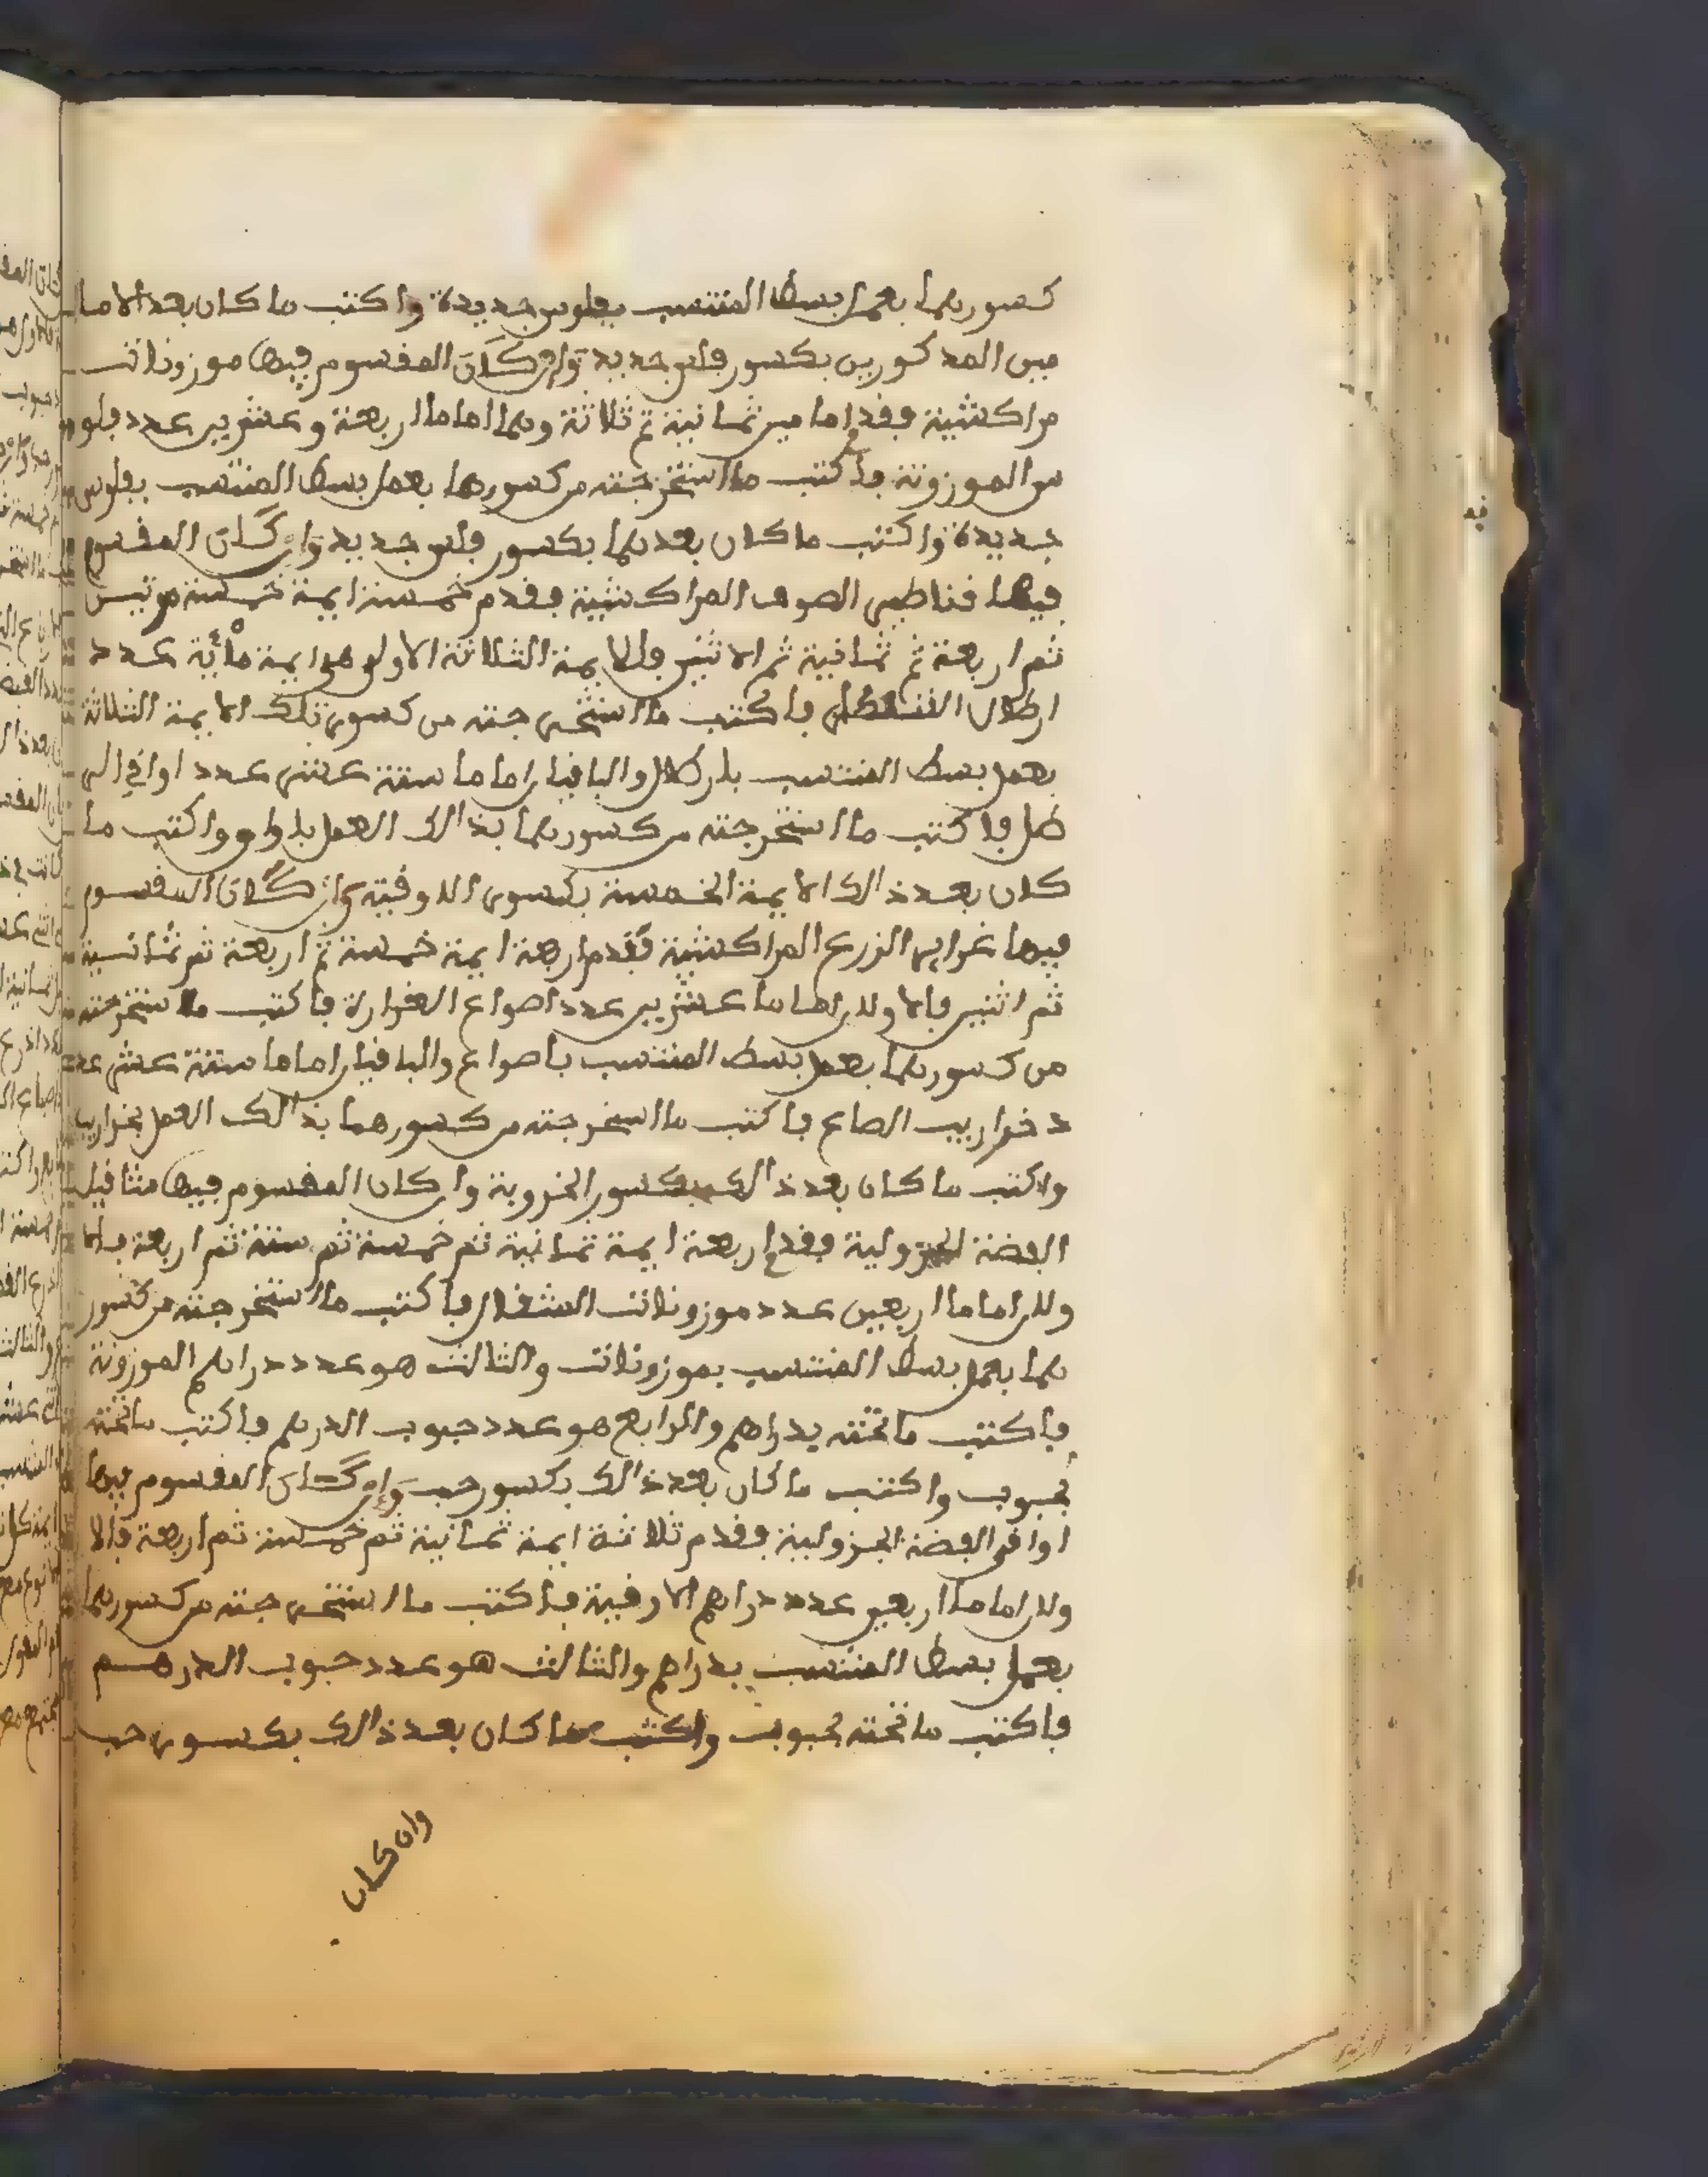 كسورهما بعمل بسط المنتسب بفلوس جديدة واكتب ما كان بعد الاما
مين المذكورين بكسور فلس جديد وان كان المقسوم فيها موزونات
مراكشية فقدم امامين ثمانية ثم ثلاثة وهما اماما اربعة وعشرين عدد فلو
س الموزونة فاكتب ما استخرجته من كسورهما بعمل بسط المنتسب بفلوس
جديدة واكتب ما كان بعدهما بكسور فلس جديد وان كان المقسوم
فيها قناطير الصوف المراكشية فقدم خمسة ايمة خمسة مرتين
ثم اربعة ثم ثمانية ثم الاثنين فالايمة الثلاثة الاولى هي ايمة مائة عدد
ارطال القنطار فاكتب ما استخرجته من كسور تلك الايمة الثلاثة
بعمل بسط المنتسب بارطال والباقيان اماما ستة عشر عدد اواقي الر
طل فاكتب ما استخرجته من كسورهما بذالك العمل باواق واكتب ما
كان بعد ذالك الايمة الخمسة بكسور الاوقية وان كان المقسوم
فيها غراير الزرع المراكشية فقدم اربعة ايمة خمسة ثم اربعة ثم ثمانية
ثم اثنين فالاولان اماما عشرين عدد اصواع الغرارة فاكتب ما استخرجته
من كسورهما بعمل بسط المنتسب باصواع والباقيان اماما ستة عشر عد
د خراريب الصاع فاكتب ما استخرجته من كسورهما بذالك العمل بخراريب
واكتب ما كان بعد ذالك بكسور الخروبة وان كان المقسوم فيها مثاقيل
الفضة الجزولية فقدم اربعة ايمة ثمانية ثم خمسة ثم ستة ثم اربعة فالا
ولان اماما اربعين عدد موزونات المثقال فاكتب ما استخرجته من كسور
هما بعمل بسط المنتسب بموزونات والثالث هو عدد دراهم الموزونة
فاكتب ما تحته بدراهم والرابع هو عدد حبوب الدرهم فاكتب ما تحته
بحبوب واكتب ما كان بعد ذالك بكسور حب وان كان المقسوم فيها
اواقي الفضة الجزولية فقدم ثلاثة ايمة ثمانية ثم خمسة ثم اربعة فالا
ولان اماما اربعين عدد دراهم الاوقية فاكتب ما استخرجته من كسورهما
بعمل بسط المنتسب بدراهم والثالث هو عدد حبوب الدرهم
فاكتب ما تحته بحبوب واكتب ما كان بعد ذالك بكسور حب
وان كان